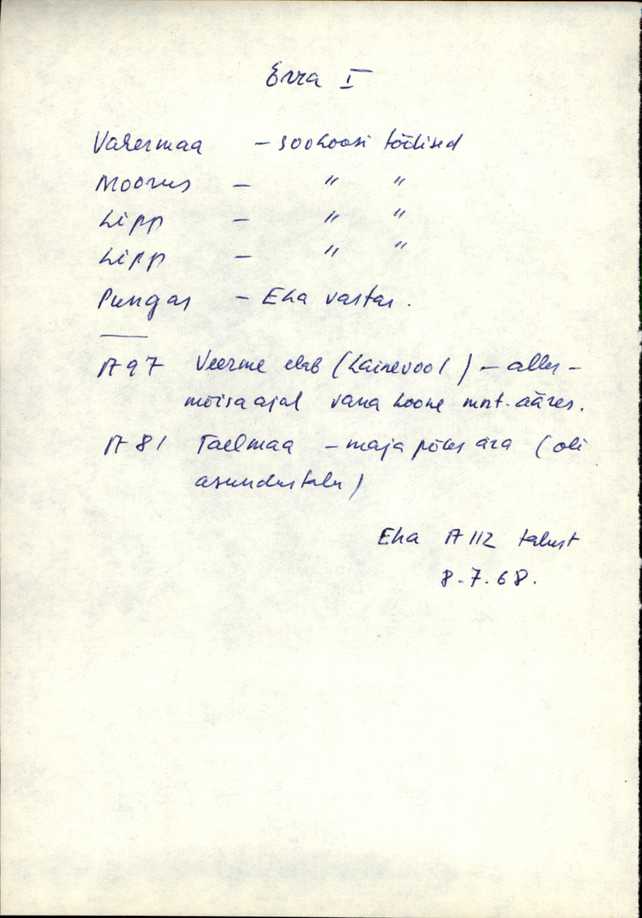 Erra I
Vahermaa - sovhoosi töölised
Moorus - " "
Lipp - " "
Lipp - " "
Pungas - Eha vastas.
A 97 Veerme elab (Lainevool) - alles -
mõisaajal vana hoone mnt. ääres.
A 81 Taelmaa - maja põles ära (oli
asundustalu)
Eha A 112 talust
8.7.68.